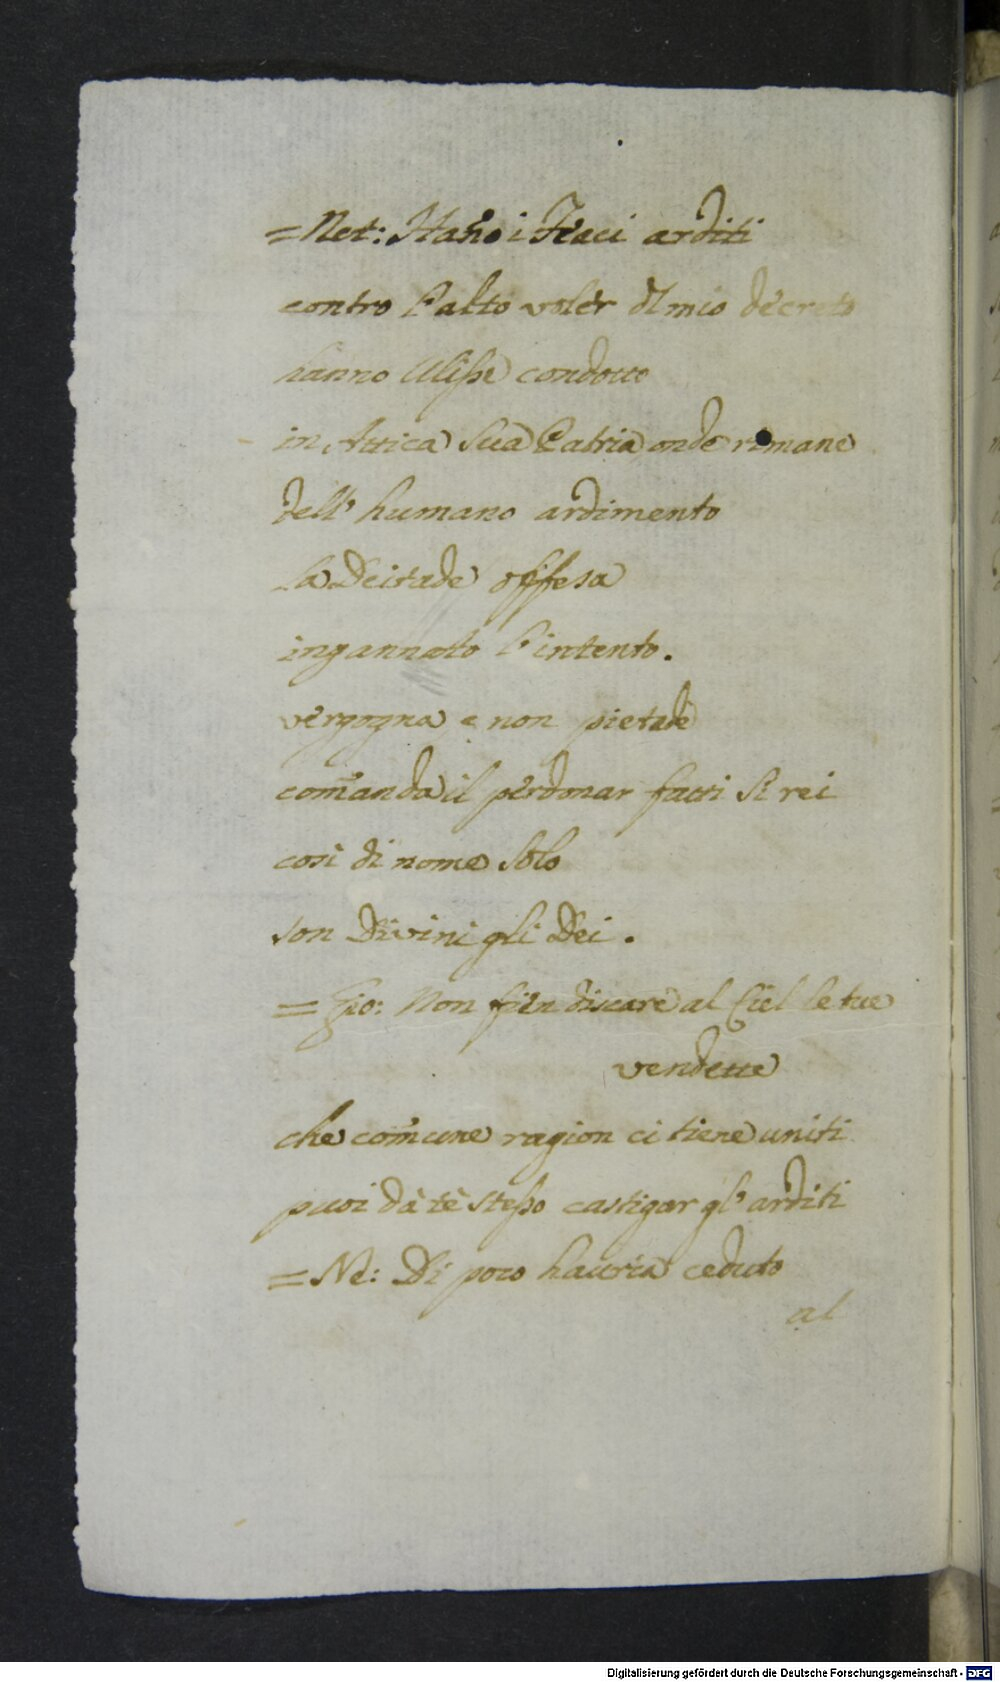 = Net: Hañō i Feaci arditi
contro l'alto voler dl mio decreto
hanno Ulisse condotto
in Attica sua Patria onde rimane
dell' humano ardimento
la Deitade offesa
ingannato l'intento.
vergogna e non pietade
com̃anda il perdonar fatti si rei
così di nome solo
son Divini gli Dei.
= Gio: Non fien discare al Ciel le tue
vendette
che com̃une ragion ci tiene uniti
puoi dà tè stesso castigar gl' arditi
= Ne: Di poco hauria ceduto
al
Digitalisierung gefördert durch die Deutsche Forschungsgemeinschaft - DFG